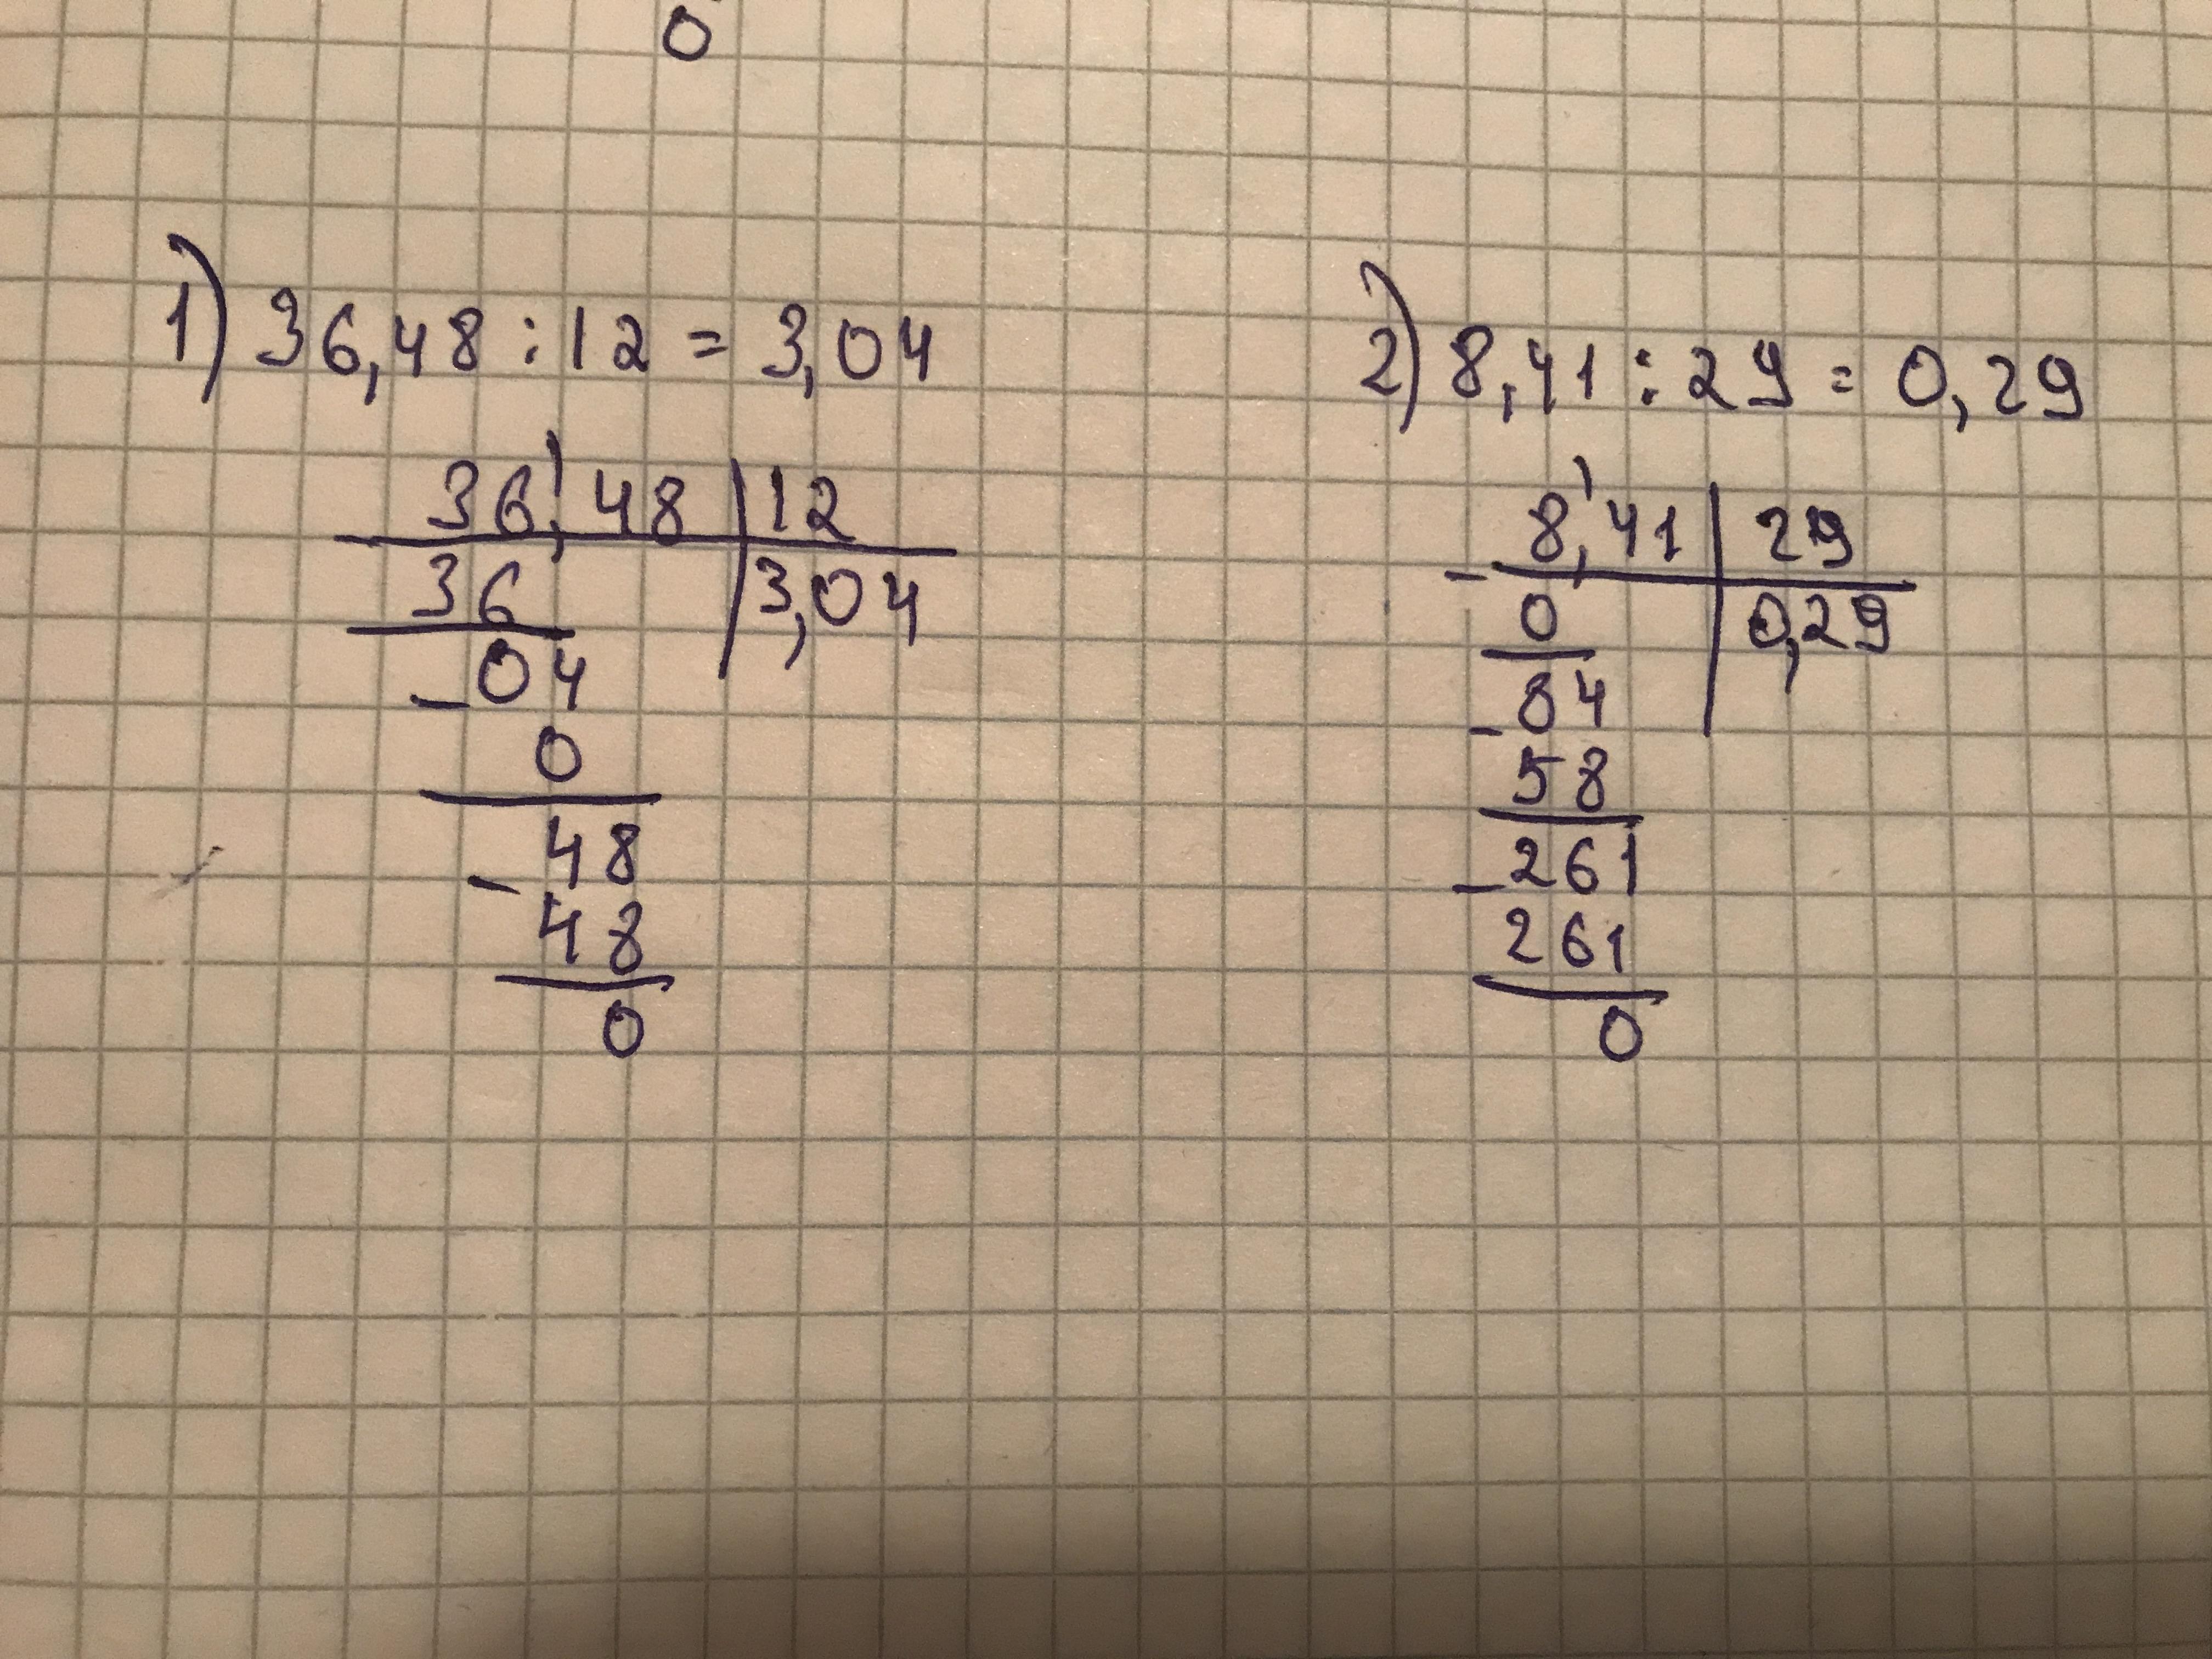 0
1) 36,48 : 12 = 3,04
36,48 | 12
36 | 3,04
- 04
0
- 48
48
0
2) 8,41 : 29 = 0,29
- 8,41 | 29
0 | 0,29
- 84
58
- 261
261
0